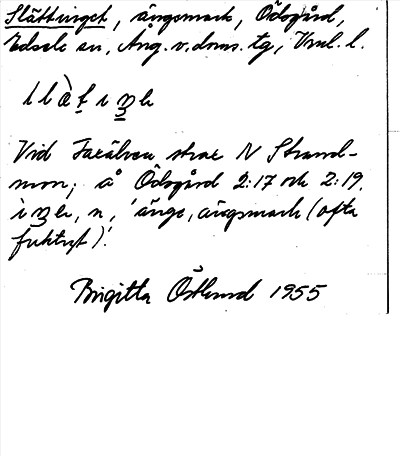 Slåttinget, ängsmark, Ödsgård,
Edsele sn, Ång. v. doms. tg, Vnl. l.
Vid Faxälven strax N Strand-
mon; å Ödsgård 2:17 och 2:19.
n, 'änge, ängsmark (ofta
fuktigt)'.
Birgitta Östlund 1955